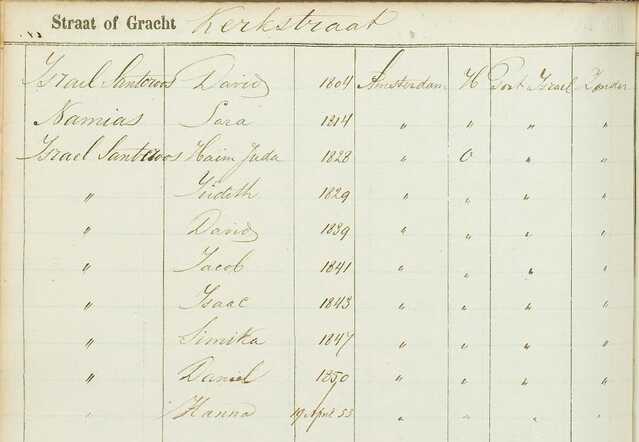 Straat of Gracht Kerkstraat
Israel Santcroos David 1804 Amsterdam H Port Israel Zonder
Namias Sara 1814 " " " "
Israel Santcroos Haim Juda 1828 " O " "
" Judith 1829 " " " "
" David 1839 " " " "
" Jacob 1841 " " " "
" Isaac 1843 " " " "
" Simika 1847 " " " "
" Daniel 1850 " " " "
" Hanna 19 April 53 " " " "